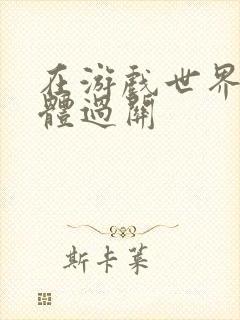 在游戲世界
體過關
斯卡萊